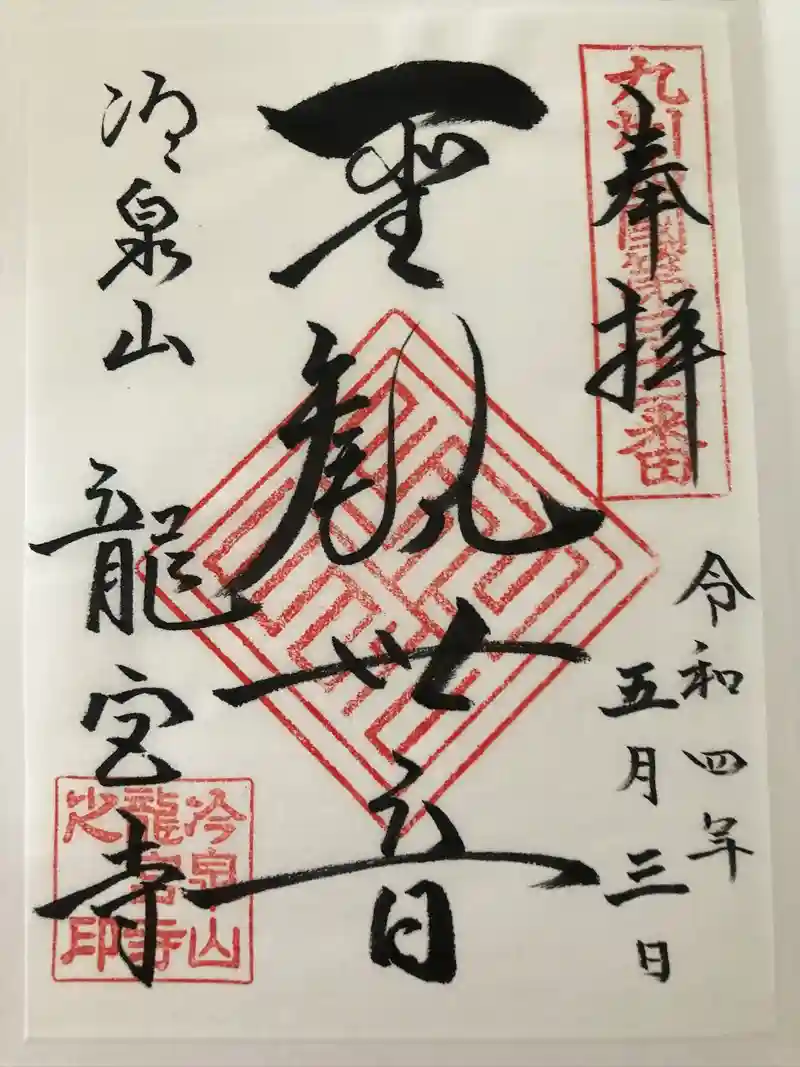 九州西國第三十二番
奉拝
令和四年
五月三日
聖観世音
冷泉山 龍宮寺
冷泉山
龍宮寺
之印